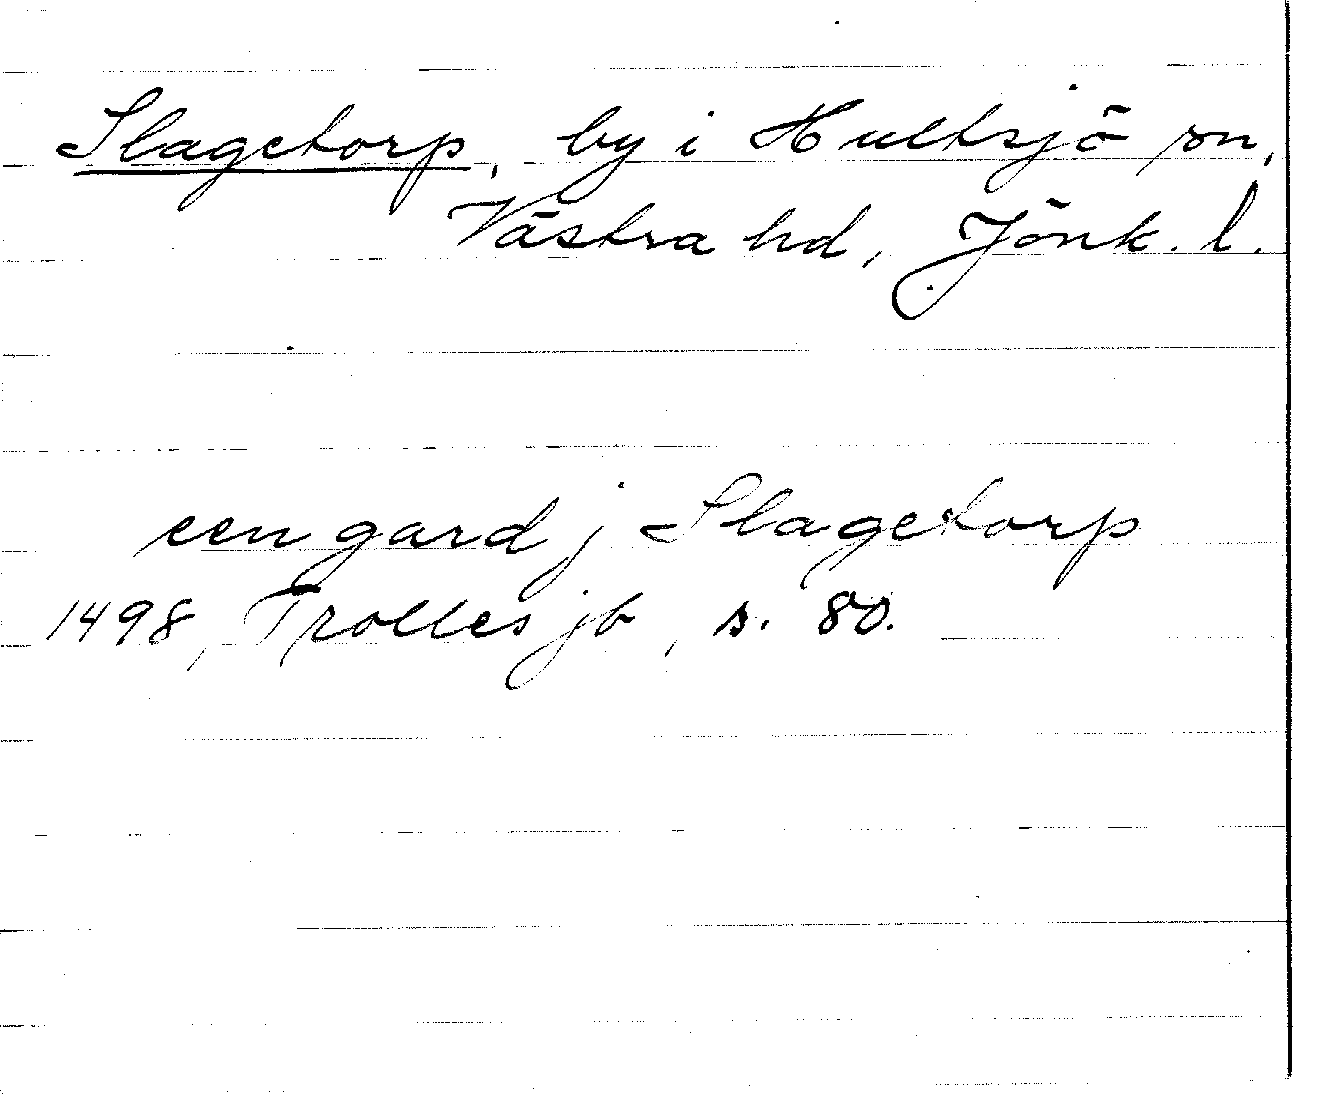 Slagetorp, by i Hultsjö sn,
Västra hd, Jönk. l.
een gard j Slagetorp
1498, Trolles jb, s. 80.